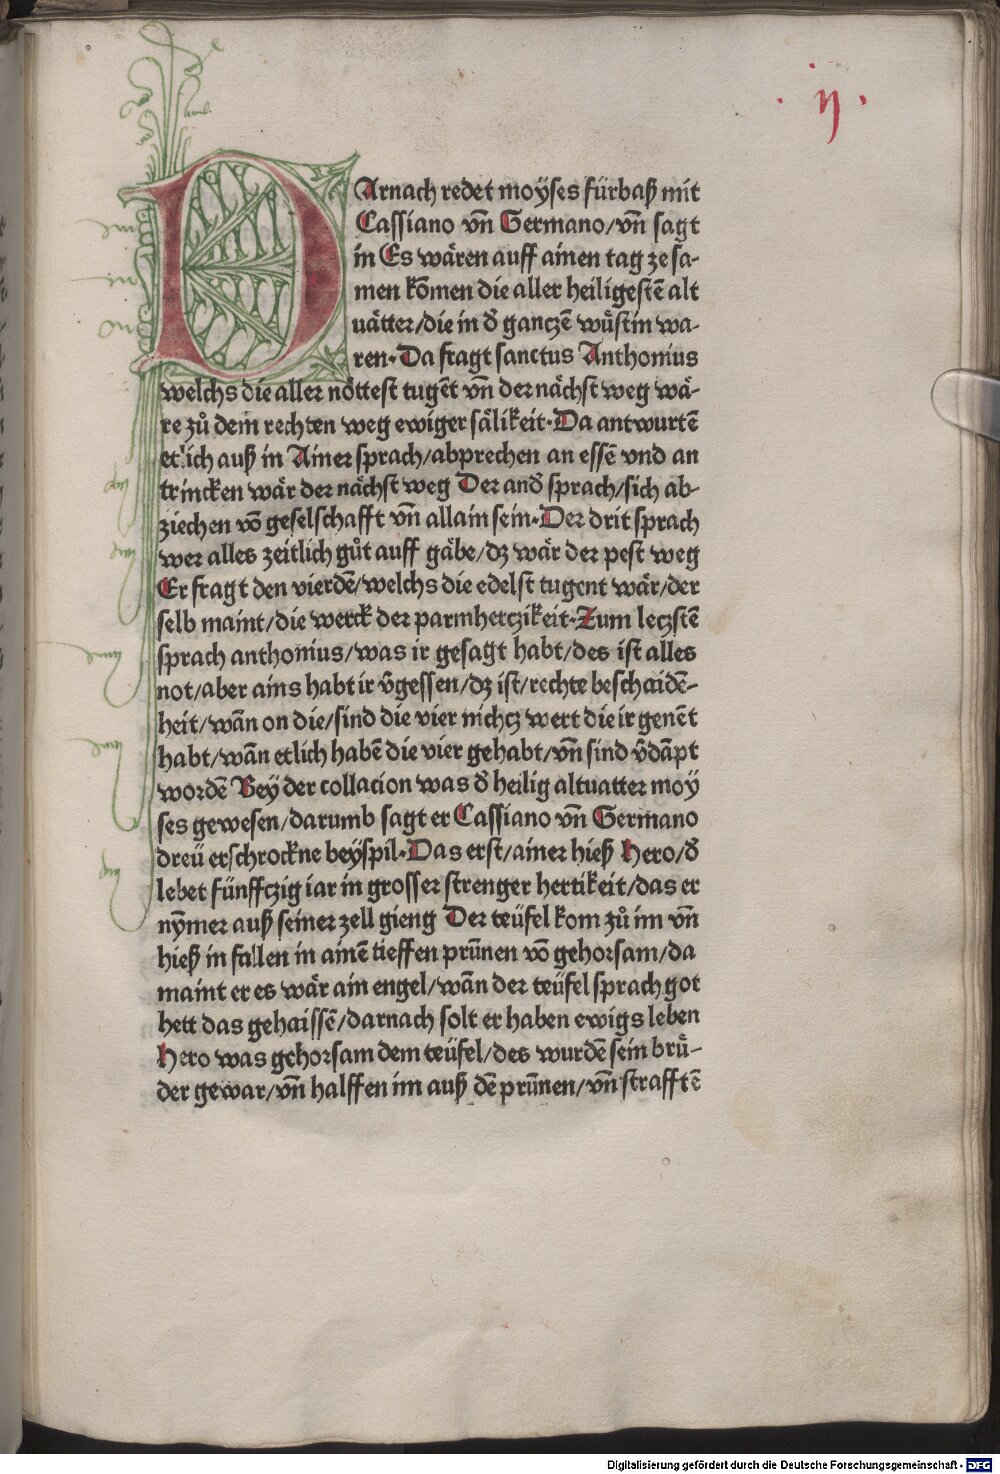 .ij.
DArnach redet moÿses fürbaß mit
Cassiano vn̄ Germano/vn̄ sagt
in Es wären auff ainen tag zesa-
men kōmen die aller heiligestē alt
uätter/die in d̄ ganczē wüstin wa-
ren·Da fragt sanctus Anthonius
welchs die aller nöttest tugēt vn̄ der nächst weg wä-
re zů dem rechten weg ewiger sälikeit·Da antwurtē
etlich auß in Ainer sprach/abprechen an essē vnd an
trincken wär der nächst weg Der and̄ sprach/sich ab-
ziechen vō geselschafft vn̄ allain sein·Der drit sprach
wer alles zeitlich gůt auff gäbe/dz wär der pest weg
Er fragt den vierdē/welchs die edelst tugent wär/der
selb maint/die werck der parmherczikeit·Zum leczstē
sprach anthonius/was ir gesagt habt/des ist alles
not/aber ains habt ir v̄gessen/dz ist/rechte beschaidē-
heit/wān on die/sind die vier nichcz wert die ir genēt
habt/wān etlich habē die vier gehabt/vn̄ sind v̄dāpt
wordē Bey der collacion was d̄ heilig altuatter moy
ses gewesen/darumb sagt er Cassiano vn̄ Germano
dreü erschrockne beÿspil·Das erst/ainer hieß Hero/d̄
lebet fünffczig iar in grosser strenger hertikeit/das er
nȳmer auß seiner zell gieng Der teüfel kom zů im vn̄
hieß in fallen in ainē tieffen prūnen vō gehorsam/da
maint er es wär ain engel/wān der teüfel sprach got
hett das gehaissē/darnach solt er haben ewigs leben
Hero was gehorsam dem teüfel/des wurdē sein brů-
der gewar/vn̄ halffen im auß dē prūnen/vn̄ strafftē
Digitalisierung gefördert durch die Deutsche Forschungsgemeinschaft - DFG